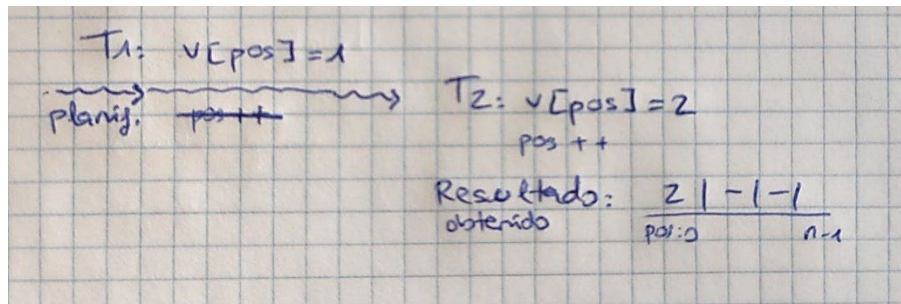 T1: v[pos]=1
planif. pos++
T2: v[pos]=2
pos++
Resultado: 2 | - | - |
obtenido pos:0 n-1